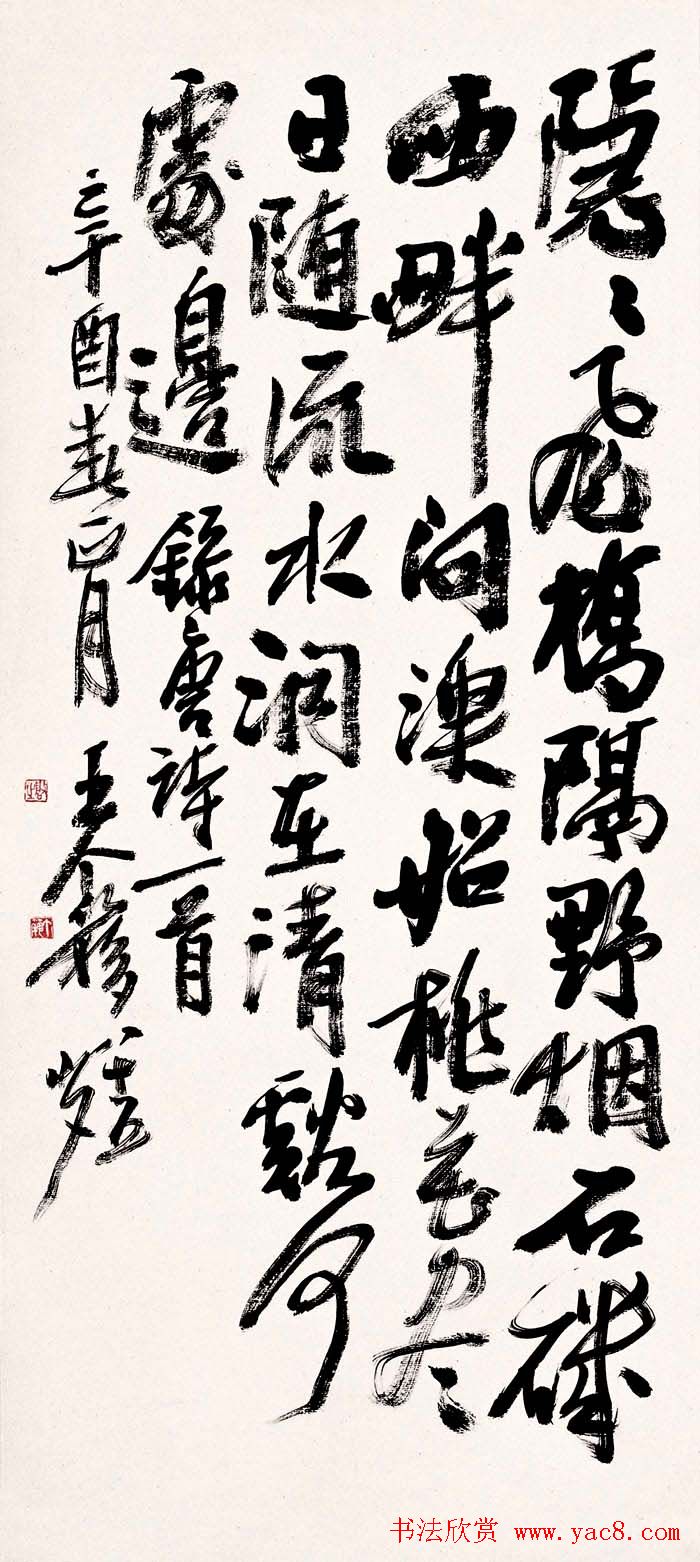 隱〻飛橋隔野烟石磯
西畔问漁船桃花尽
日随流水洞在清谿何
處邊 錄唐詩一首
辛酉春正月 王个簃
书法欣赏 www.yac8.com